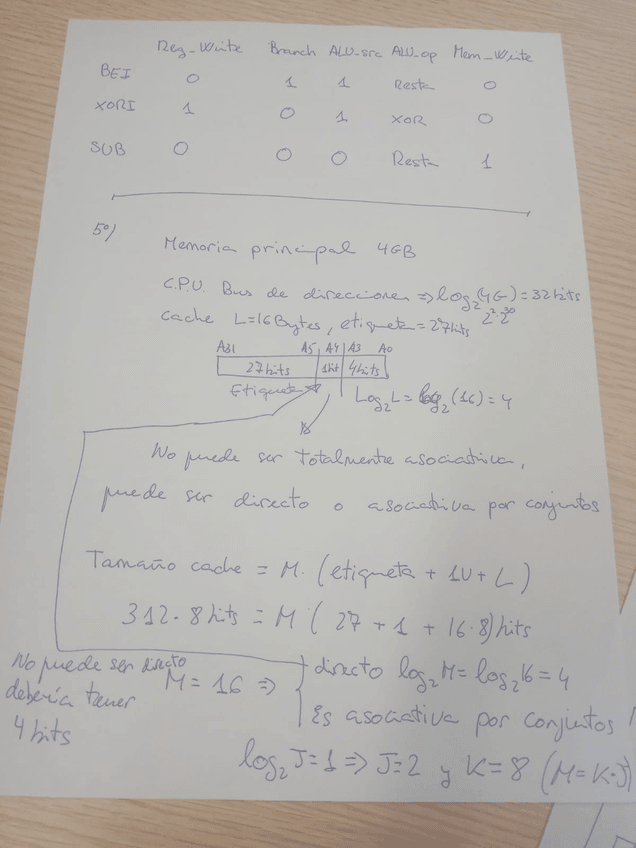 Reg_Write Branch ALU_src ALU_op Mem_Write
BEI 0 1 1 Resta 0
XORI 1 0 1 XOR 0
SUB 0 0 0 Resta 1
5º)
Memoria principal 4GB
C.P.U. Bus de direcciones ⇒ log₂(4G) = 32 bits
2²·2³⁰
cache L=16Bytes, etiqueta = 27bits
A31 A5 A4 A3 A0
27bits 1bit 4bits
Etiqueta
Log₂L = log₂(16) = 4
No puede ser totalmente asociativa,
puede ser directo o asociativa por conjuntos
Tamaño cache = M. (etiqueta + 1V + L)
312·8bits = M (27 + 1 + 16·8)bits
No puede ser directo
debería tener
4 bits
M = 16 ⇒
directo log₂M = log₂16 = 4
Es asociativa por conjuntos
log₂J=1 ⇒ J=2 y K=8 (M=K·J)